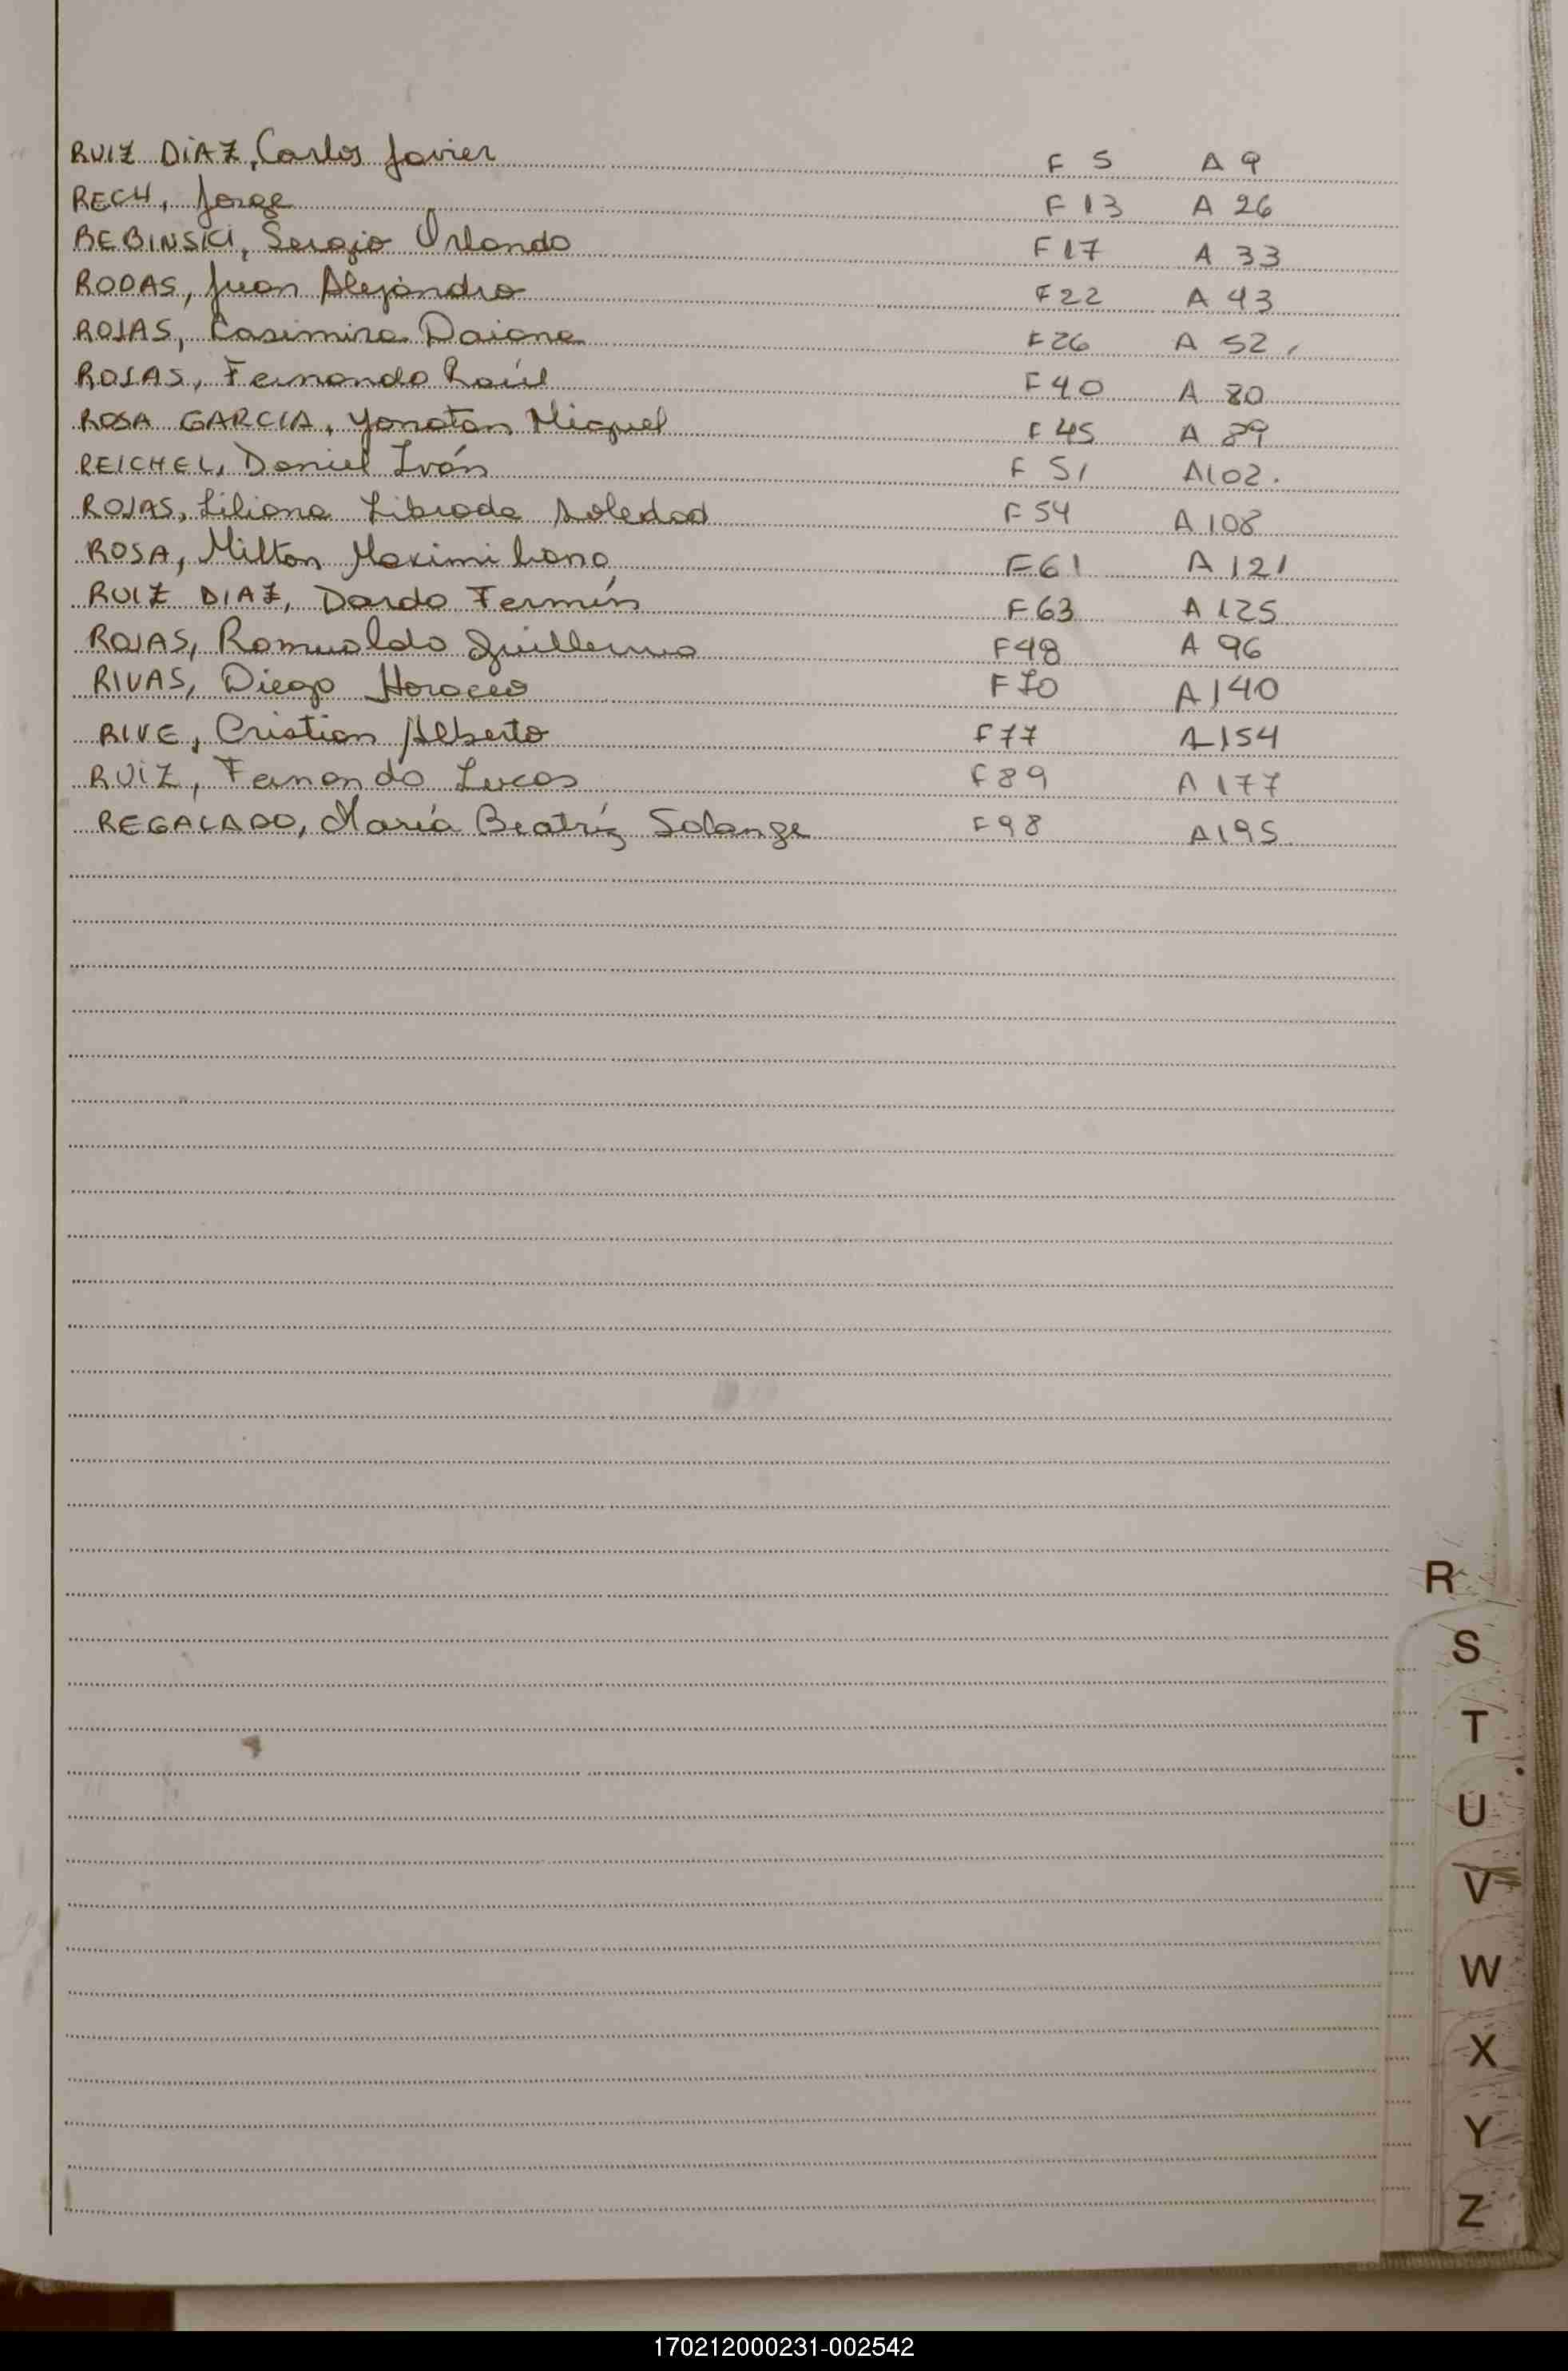 RUIZ DIAZ, Carlos Javier F 5 A 9
RECH, Jorge F 13 A 26
REBINSKI, Sergio Orlando F 17 A 33
RODAS, Juan Alejandro F 22 A 43
ROJAS, Casimira Daiana F 26 A 52
ROJAS, Fernando Raúl F 40 A 80
ROSA GARCIA, Yonatan Miguel F 45 A 89
REICHEL, Daniel Iván F 51 A 102.
ROJAS, Liliana Librada Soledad F 54 A 108
ROSA, Milton Maximiliano F 61 A 121
RUIZ DIAZ, Dardo Fermín F 63 A 125
ROJAS, Romualdo Guillermo F 48 A 96
RIVAS, Diego Horacio F 70 A 140
RIVE, Cristian Alberto F 77 A 154
RUIZ, Fernando Lucas F 89 A 177
REGALADO, María Beatríz Solange F 98 A 195
R
S
T
U
V
W
X
Y
Z
170212000231-002542